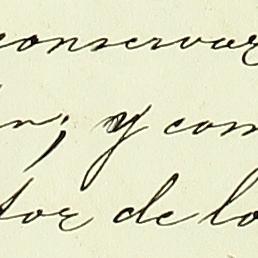 conservar
; y com
tor de lo